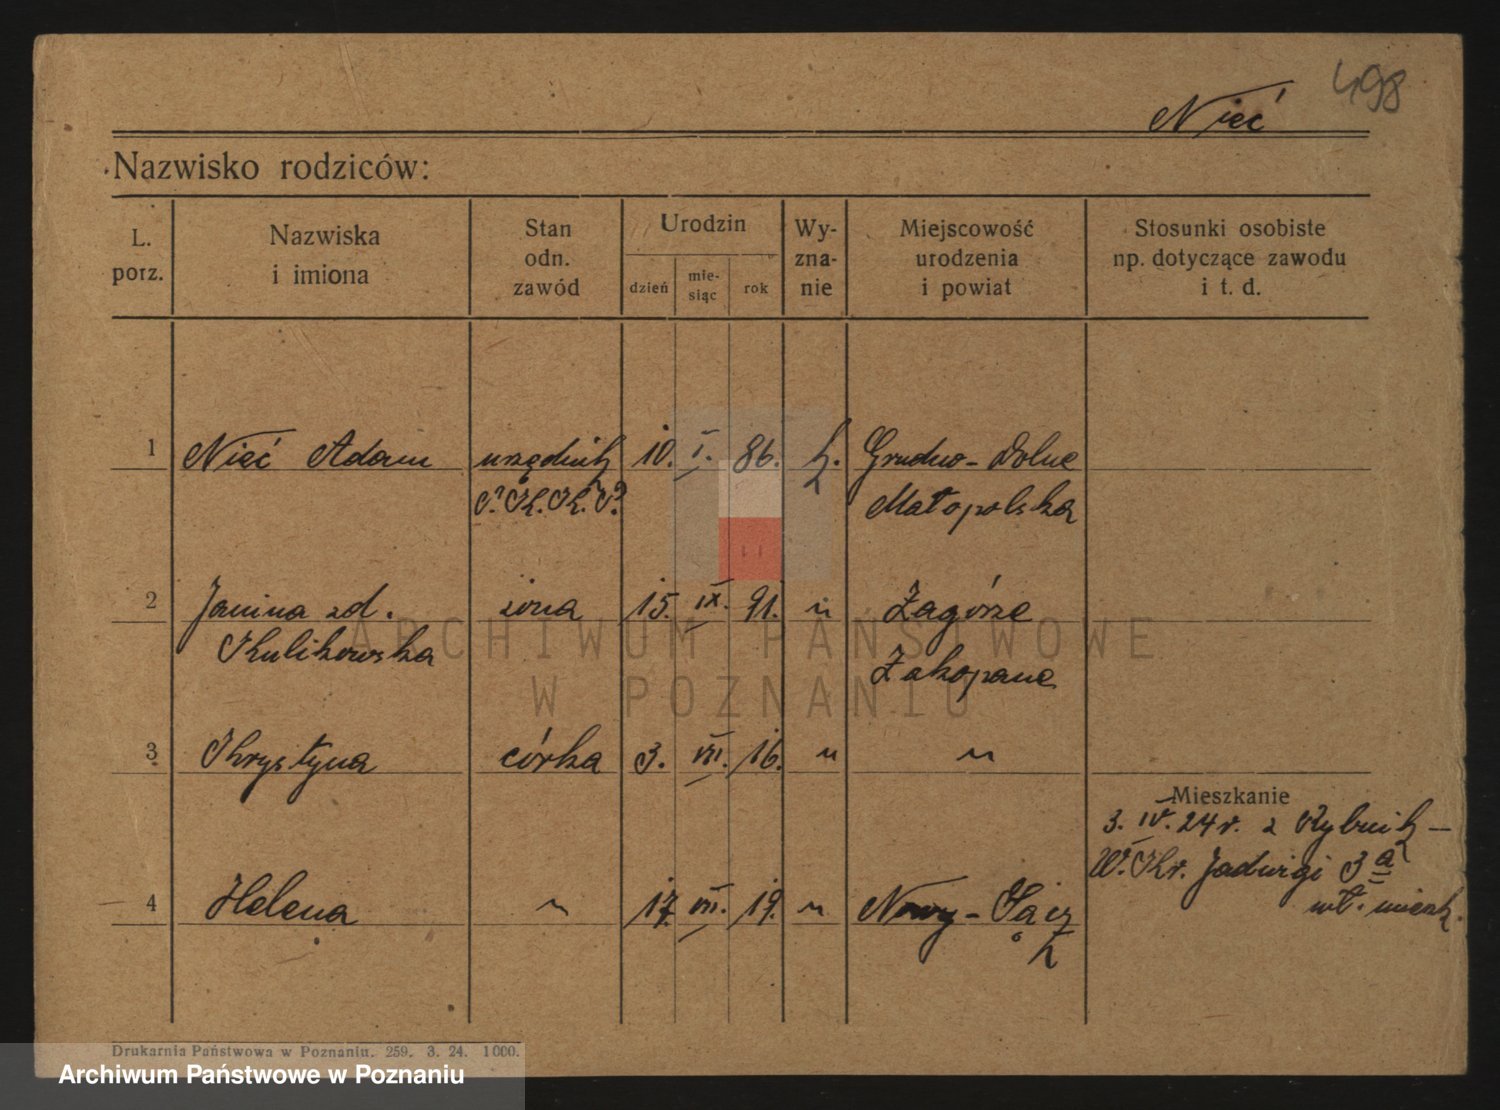 498
Nieć
Nazwisko rodziców:
L. porz.
Nazwiska i imiona
Stan odn. zawód
Urodzin
dzień
mie-
siąc
rok
Wy-
zna-
nie
Miejscowość urodzenia i powiat
Stosunki osobiste
np. dotyczące zawodu
i t. d.
1 Nieć Adam urzędnik 10. I. 86. k. Grudno-Dolne
P.K.K.P. Małopolska
2 Janina zd. żona 15. IX. 91. " Zagórze
Kulikowska Zakopane
3 Krystyna córka 3. VII. 16. " "
Mieszkanie
3. IV. 24 r. z Rybnik –
W. Kr. Jadwigi 3 a
wł. mieszk.
4 Helena " 17. VII. 19. " Nowy-Sącz
ARCHIWUM PAŃSTWOWE
W POZNANIU
Drukarnia Państwowa w Poznaniu. 259. 3. 24. 1000.
Archiwum Państwowe w Poznaniu